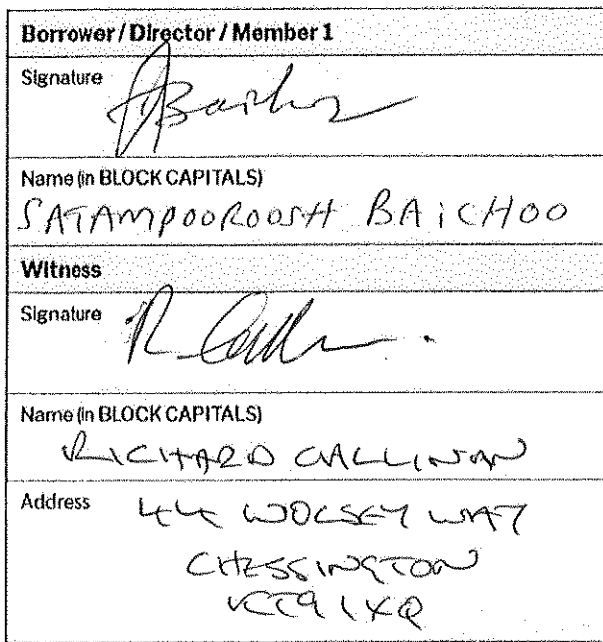 Borrower / Director / Member 1
Signature
Name (in BLOCK CAPITALS)
SATAMPOOROOSH BAICHOO
Witness
Signature
Name (in BLOCK CAPITALS)
RICHARD CALLINAN
Address 44 WOLSEY WAY
CHESSINGTON
KT9 1XQ